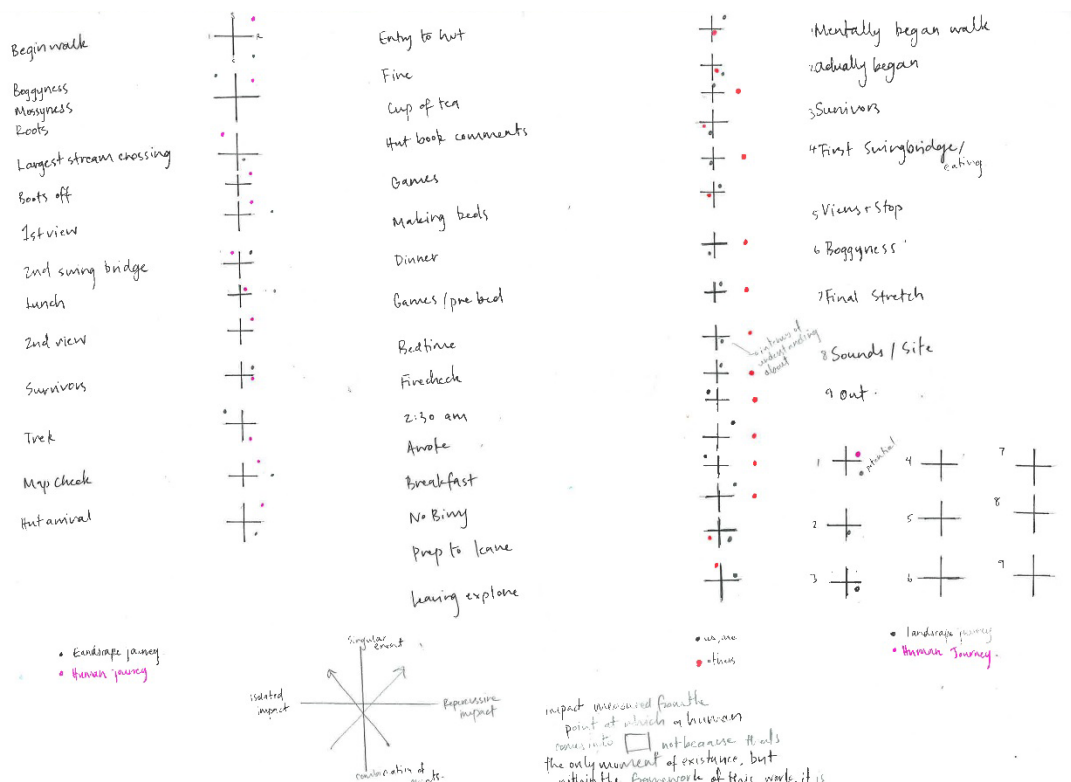 Begin walk
Boggyness
Mossyness
Roots
Largest stream crossing
Boots off
1st view
2nd swing bridge
Lunch
2nd view
Survivors
Trek
Map Check
Hut arrival
• Landscape journey
• Human journey
Entry to hut
Fire
Cup of tea
Hut book comments
Games
Making beds
Dinner
Games / pre bed
Bedtime
Firecheck
2:30 am
Awoke
Breakfast
No Binny
Prep to leave
Leaving explore
in terms of
understanding
about
• us, me
• others
1 Mentally began walk
2 actually began
3 Survivors
4 First Swingbridge/
eating
5 Views + Stop
6 Boggyness
7 Final Stretch
8 Sounds / Site
9 Out.
1
potential
4
7
2
5
8
3
6
9
• landscape journey
• Human Journey.
Singular
event
isolated
impact
Repercussive
impact
combination of
impact measured from the
point at which a human
comes into
not because that's
the only moment of existance, but
within the framework of this work, it is